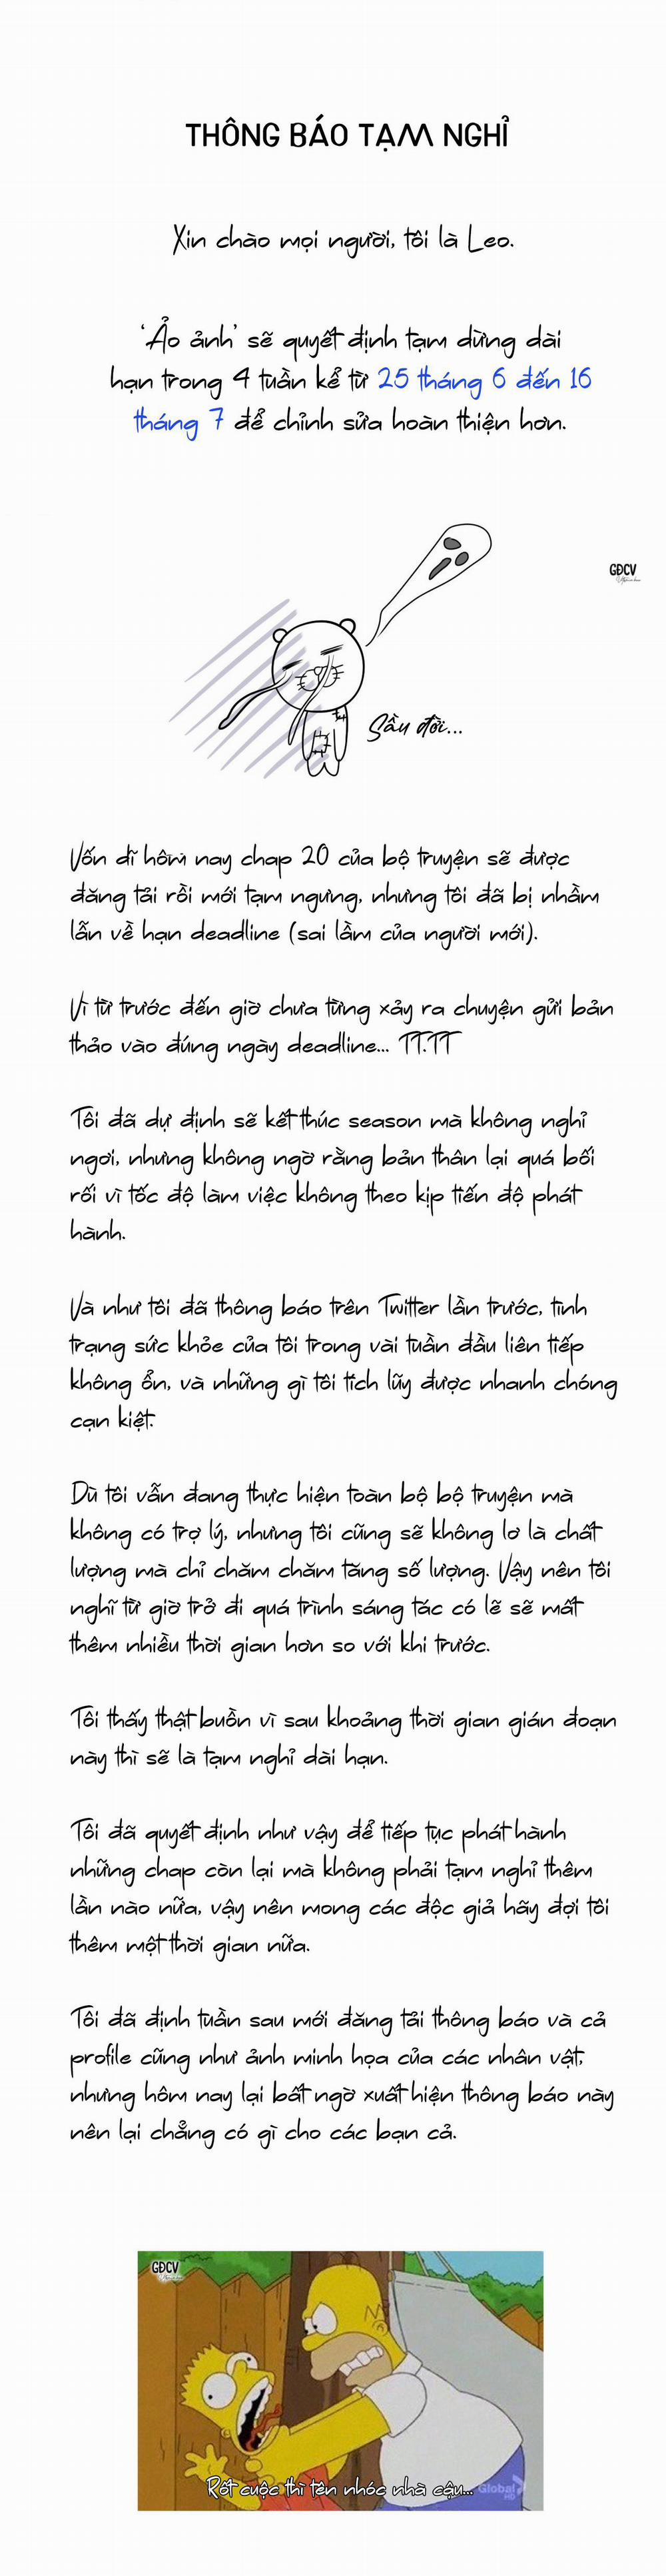 THÔNG BÁO TẠM NGHỈ
Xin chào mọi người, tôi là Leo.
'Ảo ảnh' sẽ quyết định tạm dừng dài
hạn trong 4 tuần kể từ 25 tháng 6 đến 16
tháng 7 để chỉnh sửa hoàn thiện hơn.
GĐCV
Sầu đời...
Vốn dĩ hôm nay chap 20 của bộ truyện sẽ được
đăng tải rồi mới tạm ngưng, nhưng tôi đã bị nhầm
lẫn về hạn deadline (sai lầm của người mới).
Vì từ trước đến giờ chưa từng xảy ra chuyện gửi bản
thảo vào đúng ngày deadline... TT.TT
Tôi đã dự định sẽ kết thúc season mà không nghỉ
ngơi, nhưng không ngờ rằng bản thân lại quá bối
rối vì tốc độ làm việc không theo kịp tiến độ phát
hành.
Và như tôi đã thông báo trên Twitter lần trước, tình
trạng sức khỏe của tôi trong vài tuần đầu liên tiếp
không ổn, và những gì tôi tích lũy được nhanh chóng
cạn kiệt.
Dù tôi vẫn đang thực hiện toàn bộ bộ truyện mà
không có trợ lý, nhưng tôi cũng sẽ không lơ là chất
lượng mà chỉ chăm chăm tăng số lượng. Vậy nên tôi
nghĩ từ giờ trở đi quá trình sáng tác có lẽ sẽ mất
thêm nhiều thời gian hơn so với khi trước.
Tôi thấy thật buồn vì sau khoảng thời gian gián đoạn
này thì sẽ là tạm nghỉ dài hạn.
Tôi đã quyết định như vậy để tiếp tục phát hành
những chap còn lại mà không phải tạm nghỉ thêm
lần nào nữa, vậy nên mong các độc giả hãy đợi tôi
thêm một thời gian nữa.
Tôi đã định tuần sau mới đăng tải thông báo và cả
profile cũng như ảnh minh họa của các nhân vật,
nhưng hôm nay lại bất ngờ xuất hiện thông báo này
nên lại chẳng có gì cho các bạn cả.
GĐCV
Rốt cuộc thì tên nhóc nhà cậu...
Global
HD